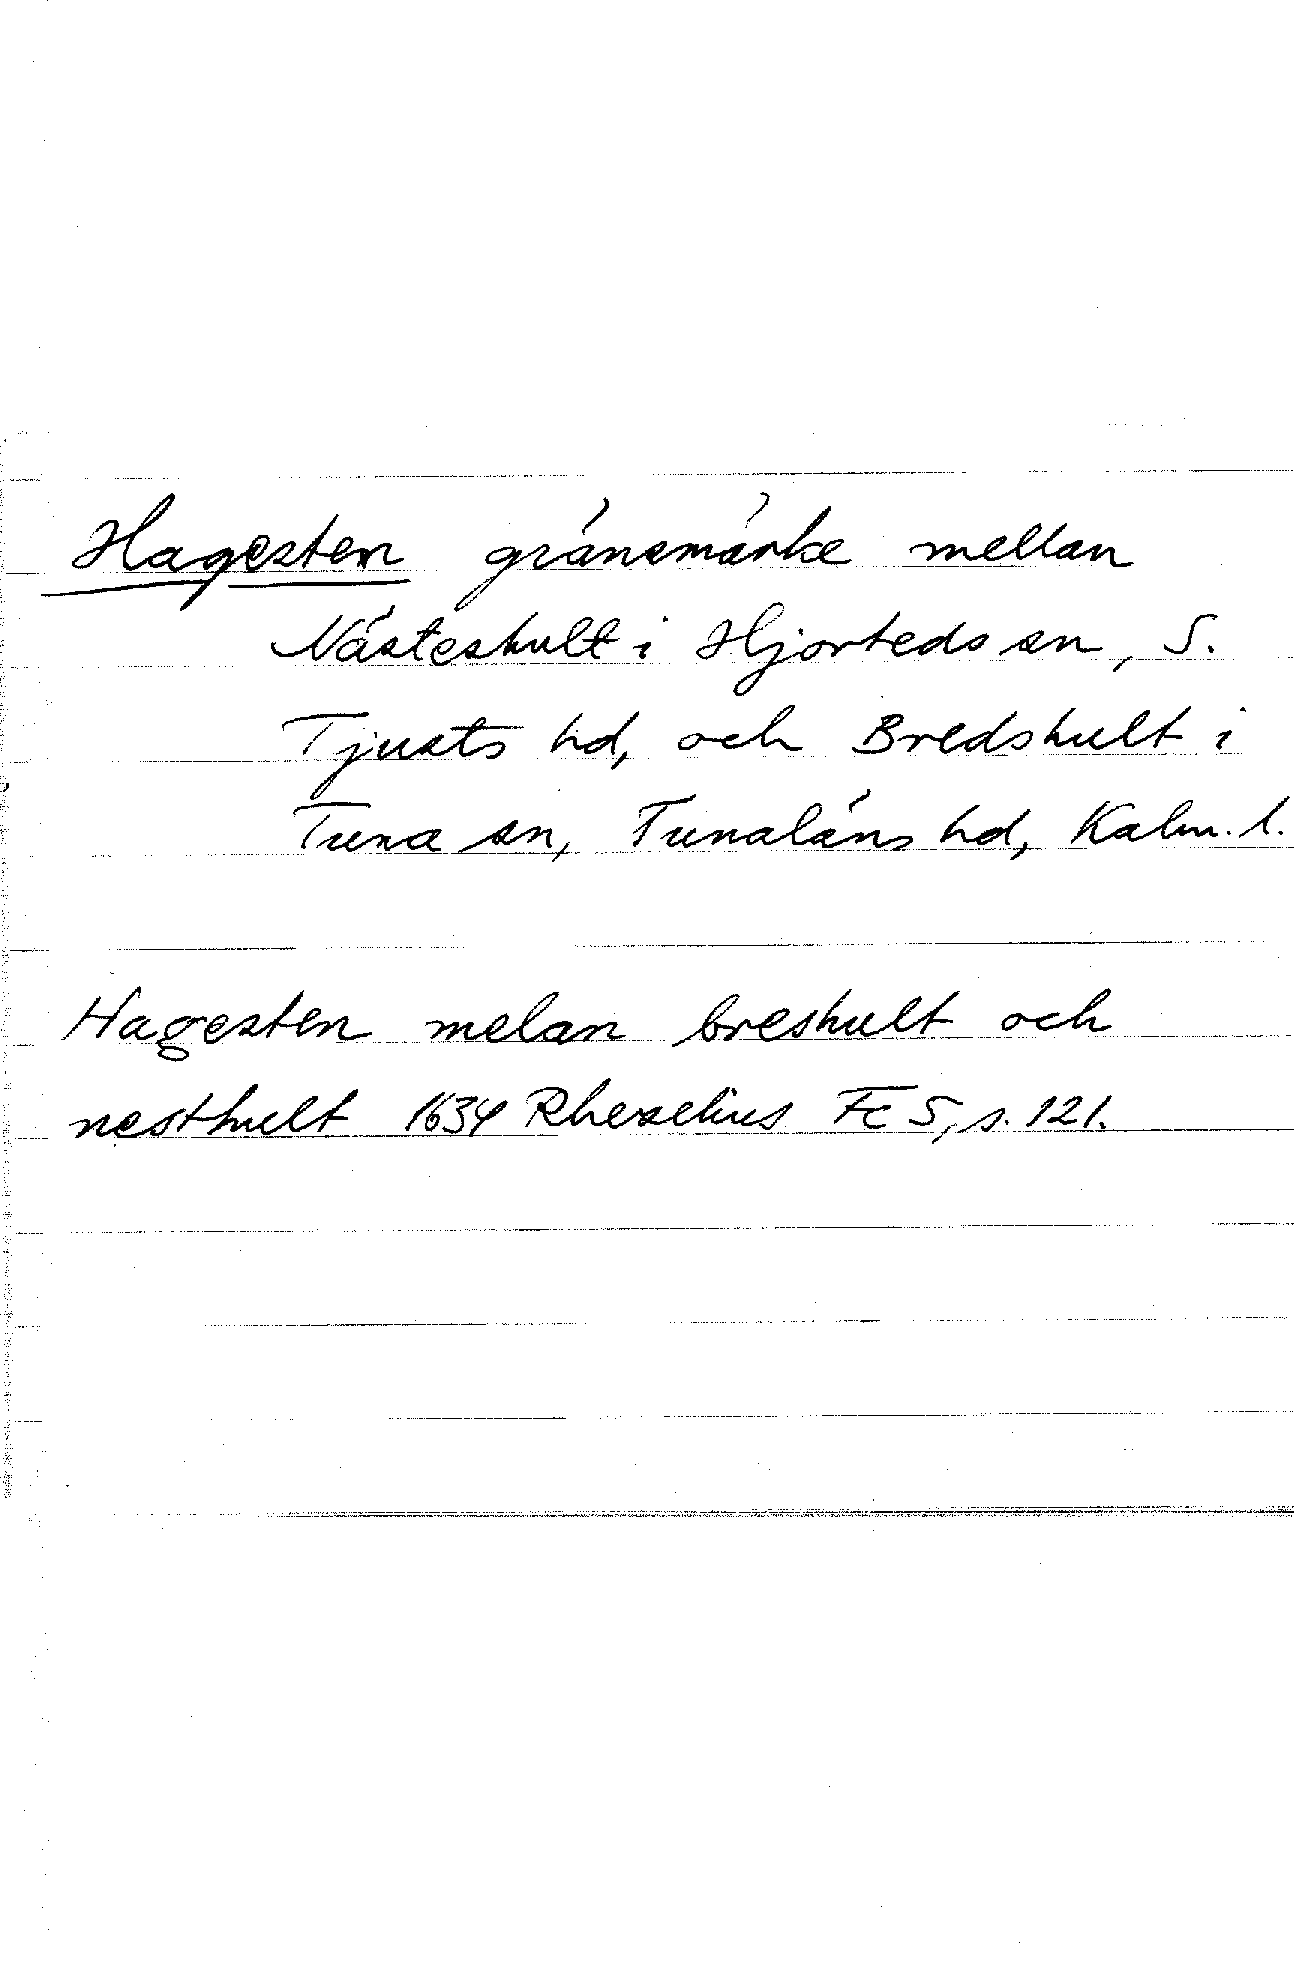 Hagesten gränsmärke mellan
Nästeshult i Hjorteds sn, S.
Tjusts hd, och Bredshult i
Tuna sn, Tunaläns hd, Kalm. l.
Hagesten melan breshult och
nesthult 1634 Rhezelius Fc 5, s. 121.